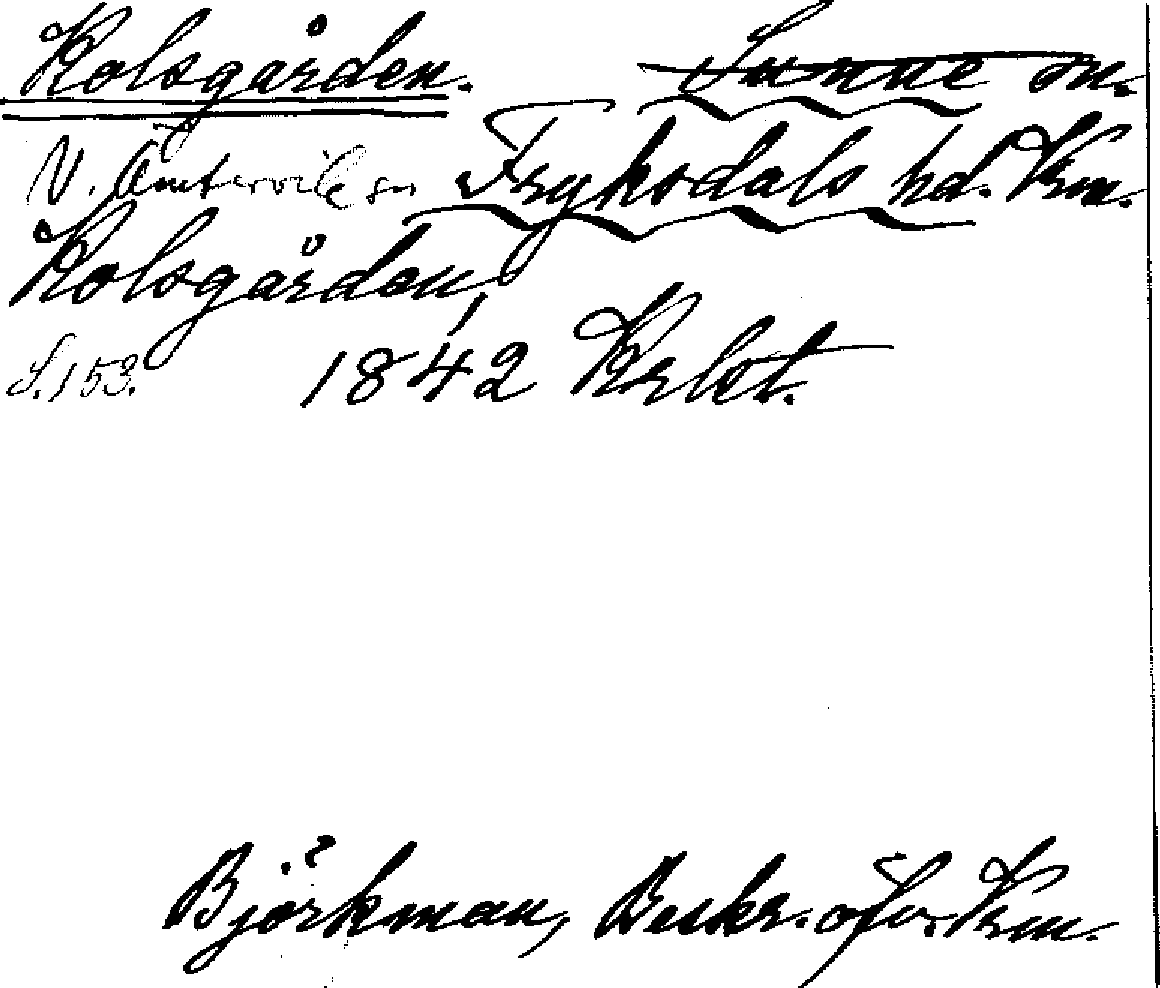 Kolsgården. Sunne sn.
V. Ämtervik sn Fryksdals hd. Vrm.
Kolsgården,
S. 153. 1842 Krlst.
Björkman, Beskr. öfver Vrm.